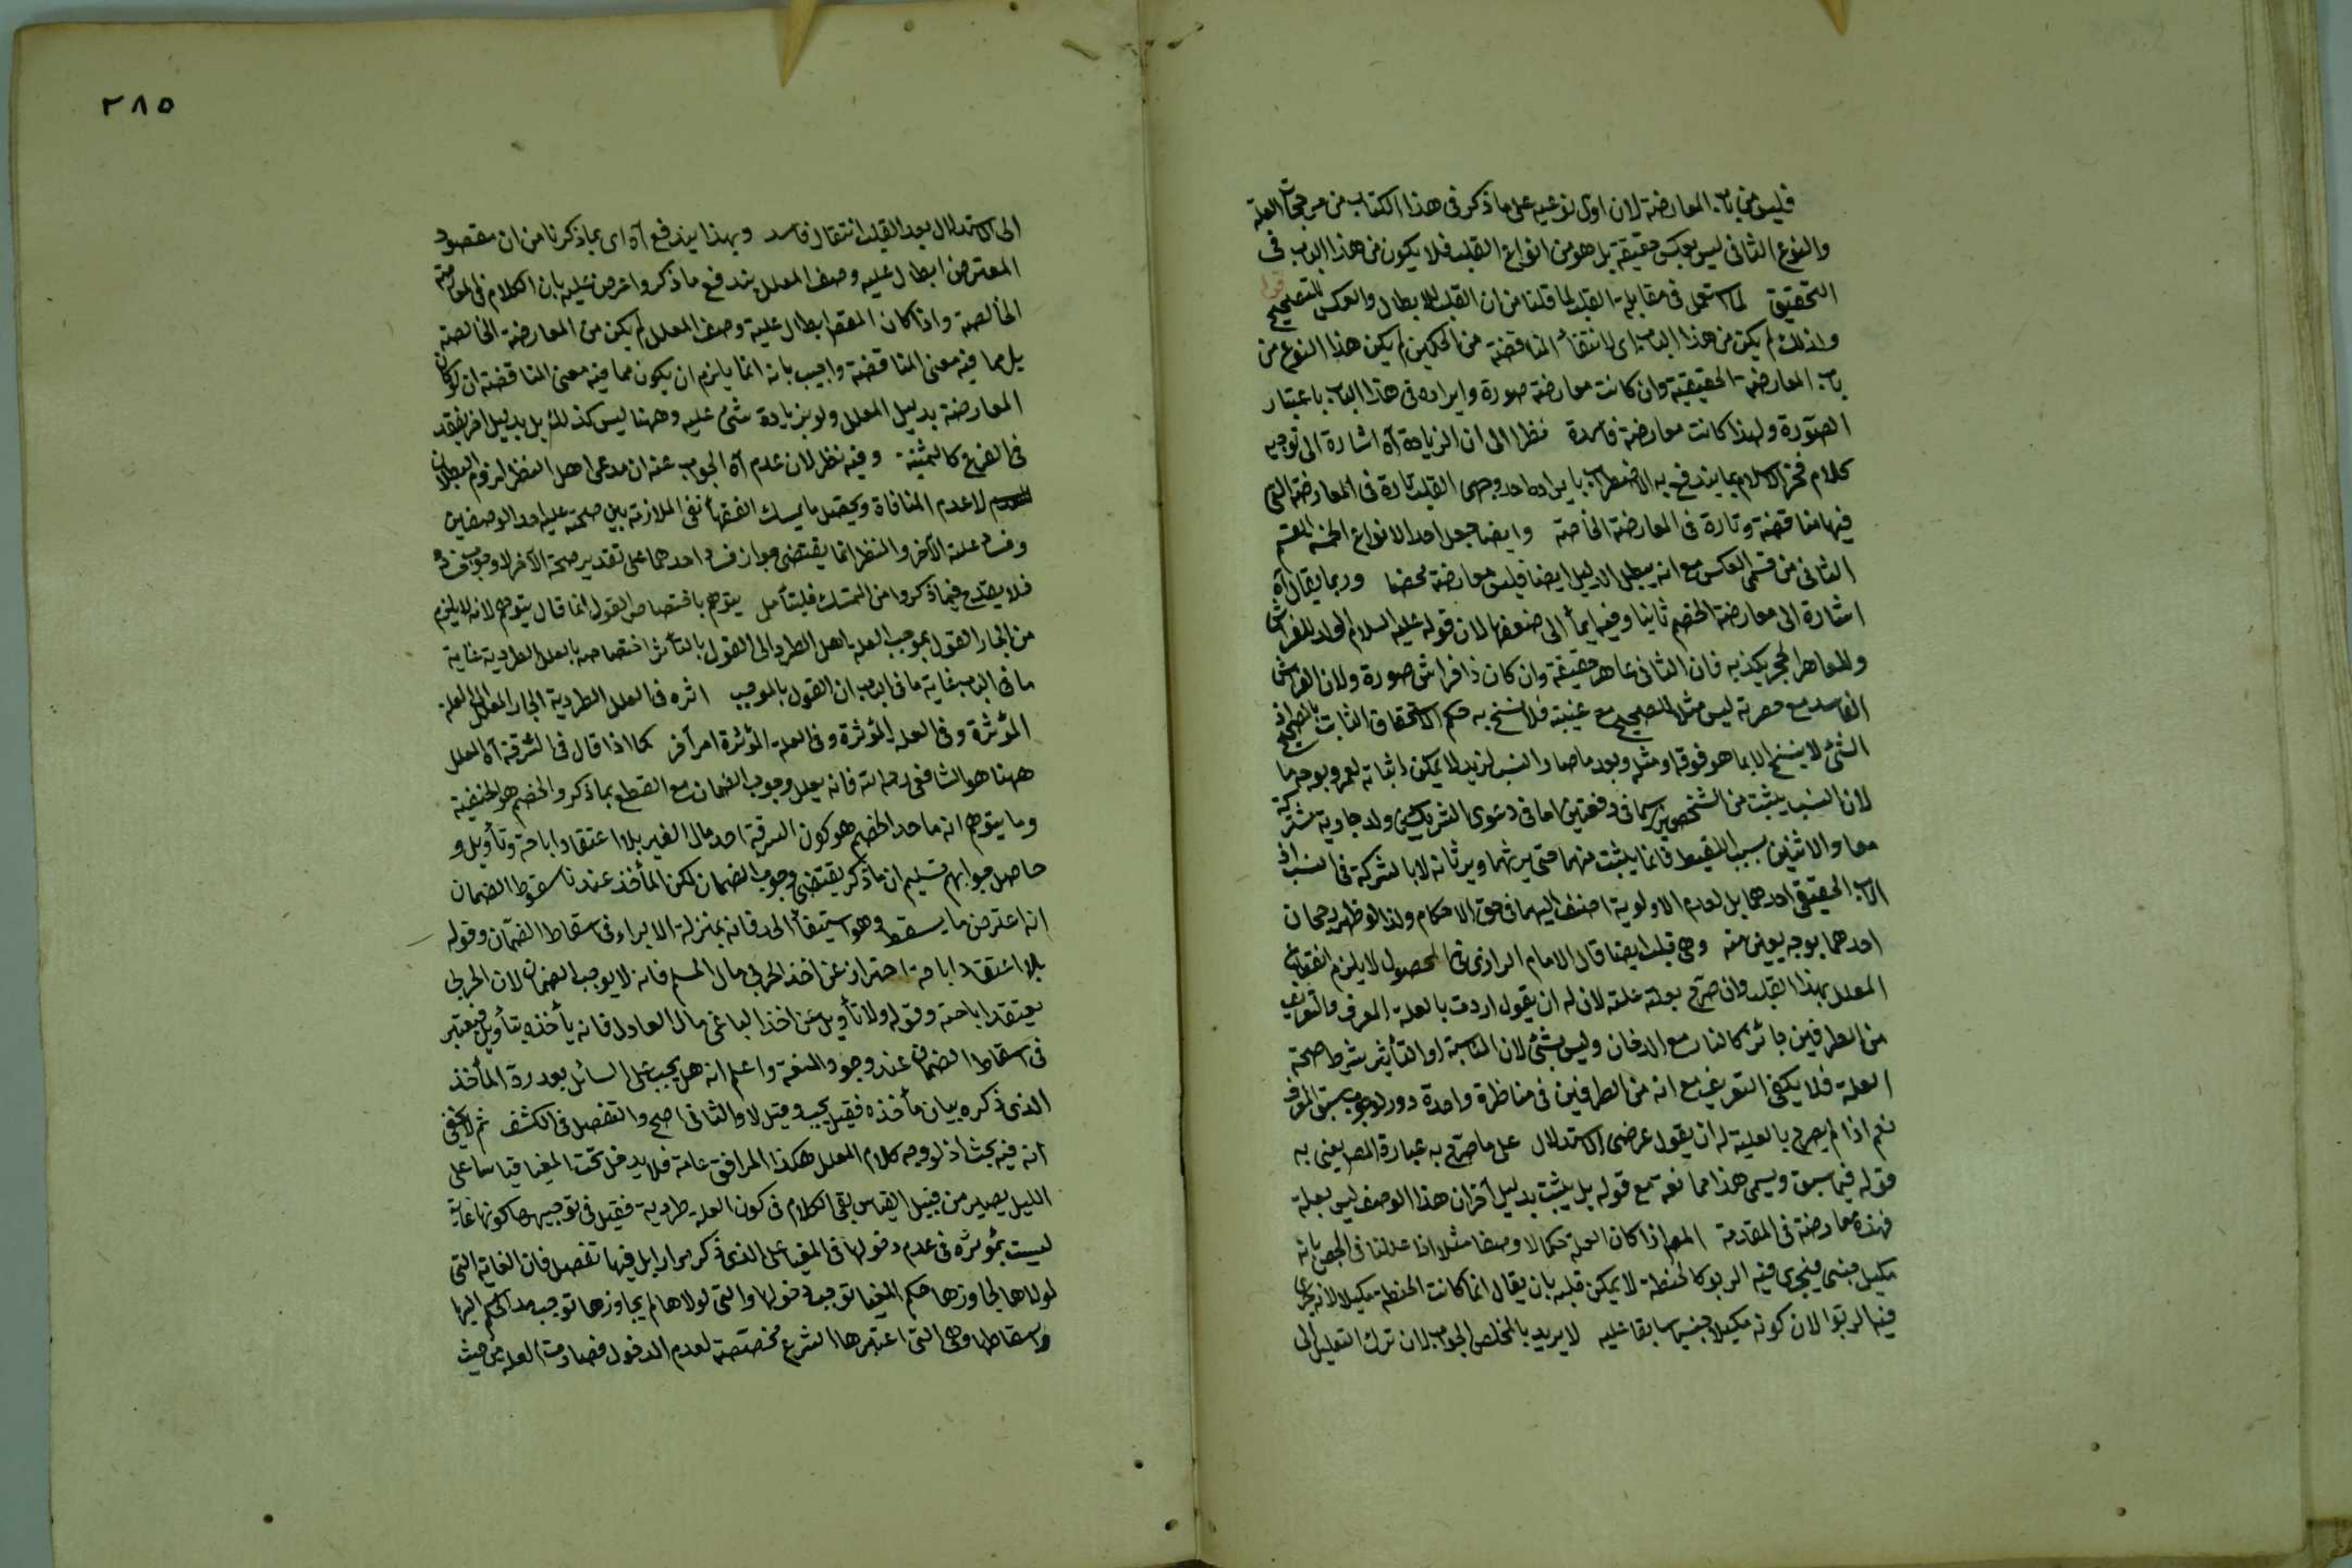 فليس من باب المعارضة لان اول نوعيه على ما ذكر فى هذا الكتاب من مرجحات العلة
والنوع الثانى ليس بعكس حقيقة بل هو من انواع القلب فلا يكون من هذا الباب فى
التحقيق لما استعمل فى مقابلة القلب لما قلنا من ان القلب للابطال والعكس للتصحيح
ولذلك لم يكن من هذا الباب اى لانتفاء المناقضة من الحكمين لم يكن هذا النوع من
باب المعارضة الحقيقية وان كانت معارضة صورة وايراده فى هذا الباب باعتبار
الصورة ولهذا كانت معارضة فاسدة نظرا الى ان الزيادة آه اشارة الى توجيه
كلام فخر الاسلام بما يندفع به الاضطراب بايراد احد وجهى القلب تارة فى المعارضة التى
فيها مناقضة وتارة فى المعارضة الخاصة وايضا جعل احد الانواع الخمسة القسم
الثانى من قسمى العكس مع انه يبطل الدليل ايضا فليس معارضة محضا وربما يقال آه
اشارة الى معارضة الخصم ثانيا وفيه ايماء الى ضعفها لان قوله عليه السلام الولد للفراش
وللعاهر الحجر يكذبه فان الثانى عاهر حقيقة وان كان ذا فراش صورة ولان الفراش
الفاسد مع حضرته ليس مثلا للصحيح مع غيبته فلا ينسخ به حكم الاستحقاق الثابت بالصحيح اذ
الشئ لا ينسخ الا بما هو فوقه او مثله وبعد ما صار النسب لزيد لا يمكن اثباته لعمرو بوجه ما
لان النسب يثبت من الشخصين سيما فى دفعتين اما فى دعوى الشريكين ولد جارية مشتركة
معا والاثنين بسبب اللقيط فانما يثبت منهما حتى يرثهما ويرثانه لا بالشركة فى النسب اذ
الاب الحقيقى احدهما بل لعدم الاولوية اضيف اليهما فى حق الاحكام ولذا لو ظهر رجحان
احدهما بوجه يعين منه وهى قلب ايضا قال الامام الرازى فى المحصول لا يلزم انقطاع
المعلل بهذا القلب وان صرح بعلة علته لان له ان يقول اردت بالعلة المعرف والتعريف
من الطرفين جائز كالنار مع الدخان وليس بشئ لان المناسبة او التأثير شرط صحة
العلة فلا يكفى التعريف مع انه من الطرفين فى مناظرة واحدة دور لوجوب سبق المعرف
نعم اذا لم يصرح بالعلية له ان يقول غرضى الاستدلال على ما صرح به عبارة المص يعنى به
قوله فيما سبق ويسمى هذا ممانعة مع قوله بل يثبت بدليل آخر ان هذا الوصف ليس بعلة
فهذه معارضة فى المقدمة المص اذا كان العلة حكما لا وصفا مثلا اذا عللنا فى الجص بانه
مكيل جنسى فيجرى فيه الربو كالحنطة لا يمكن قلبه بان يقال انما كانت الحنطة مكيلا لانه يجرى
فيه الربوا لان كونه مكيلا جنسيا سابقا عليه لا يريد بالمخلص الجواب لان ترك التعليل الى
٢٨٥
الى الاستدلال بعد القلب انتقال فاسد وبهذا يندفع آه اى بما ذكرنا من ان مقصود
المعترض ابطال علية وصف المعلل يندفع ما ذكر واعترض عليه بان الكلام فى المعارضة
الخالصة واذا كان المقصد ابطال علية وصف المعلل لم يكن من المعارضة الخالصة
بل مما فيه معنى المناقضة واجيب بانه انما يلزم ان يكون مما فيه معنى المناقضة ان لو كان
المعارضة بدليل المعلل ولو بزيادة شئ عليه وههنا ليس كذلك بل بدليل آخر يفقد
فى الفرع كالثمنية وفيه نظر لان عدم آه الجواب عنه ان مدعى اهل النظر لزوم البطلان
لا عدم المنافاة ويحصل ما يمسك الفقهاء نفى الملازمة بين صحة علية احد الوصفين
وفساد علية الآخر والنظر انما يقتضى جواز فساد احدهما على تقدير صحة الآخر لا وجوب فساده
فلا يقدح فيما ذكروا من التمسك فليتأمل يتوهم باختصاص القول انما قال يتوهم لانه لا يلزم
من الجاء القول بموجب العلة اهل الطرد الى القول بالتأثير اختصاصه بالعلل الطردية غاية
ما فى الباب غاية ما فى الباب ان القول بالموجب اثره فى العلل الطردية الجاء المعلل الى العلة
المؤثرة وفى العلة المؤثرة وفى العلة المؤثرة امر آخر كما اذا قال فى السرقة آه المعلل
ههنا هو الشافعى رحمه الله فانه يعلل وجوب الضمان مع القطع بما ذكر والخصم هو الحنفية
وما يتوهم انه ماخذ الخصم هو كون السرقة اخذ مال الغير بلا اعتقاد اباحة وتأويل و
حاصل جوابهم تسليم ان ما ذكر يقتضى وجوب الضمان لكن المأخذ عندنا سقوط الضمان
انه اعترض ما يسقط وهو استيفاء الحد فانه بمنزلة الابراء فى اسقاط الضمان وقوله
بلا اعتقاد اباحة احتراز عن اخذ الحربى مال المسلم فانه لا يوجب الضمان لان الحربى
يعتقد اباحته وقوله ولا تأويل عن اخذ الباغى مال العادل فانه يأخذه بتأويل فيعتبر
فى اسقاط الضمان عند وجود المنعة واعلم انه هل يجب على السائل بعد رد المأخذ
الذى ذكره بيان مأخذه فقيل يجب وقيل لا والثانى اصح والتفصيل فى الكشف ثم لا يخفى
انه فيه بحث اذ لو وجه كلام المعلل هكذا المرافق غاية فلا يدخل تحت المغيا قياسا على
الليل يصير من قبيل القياس بقى الكلام فى كون العلة طردية فقيل فى توجيهها كونها غاية
ليست بمؤثرة فى عدم دخولها فى المغيا على الذى ذكر مرارا بل فيها تفصيل فان الغاية التى
لولاها لجاوزها حكم المغيا توجب دخولها والتى لولاها لم يجاوزها توجب مد الحكم اليها
واسقاطها وهى التى اعتبرها الشرع مختصة لعدم الدخول فصارت العلة من حيث